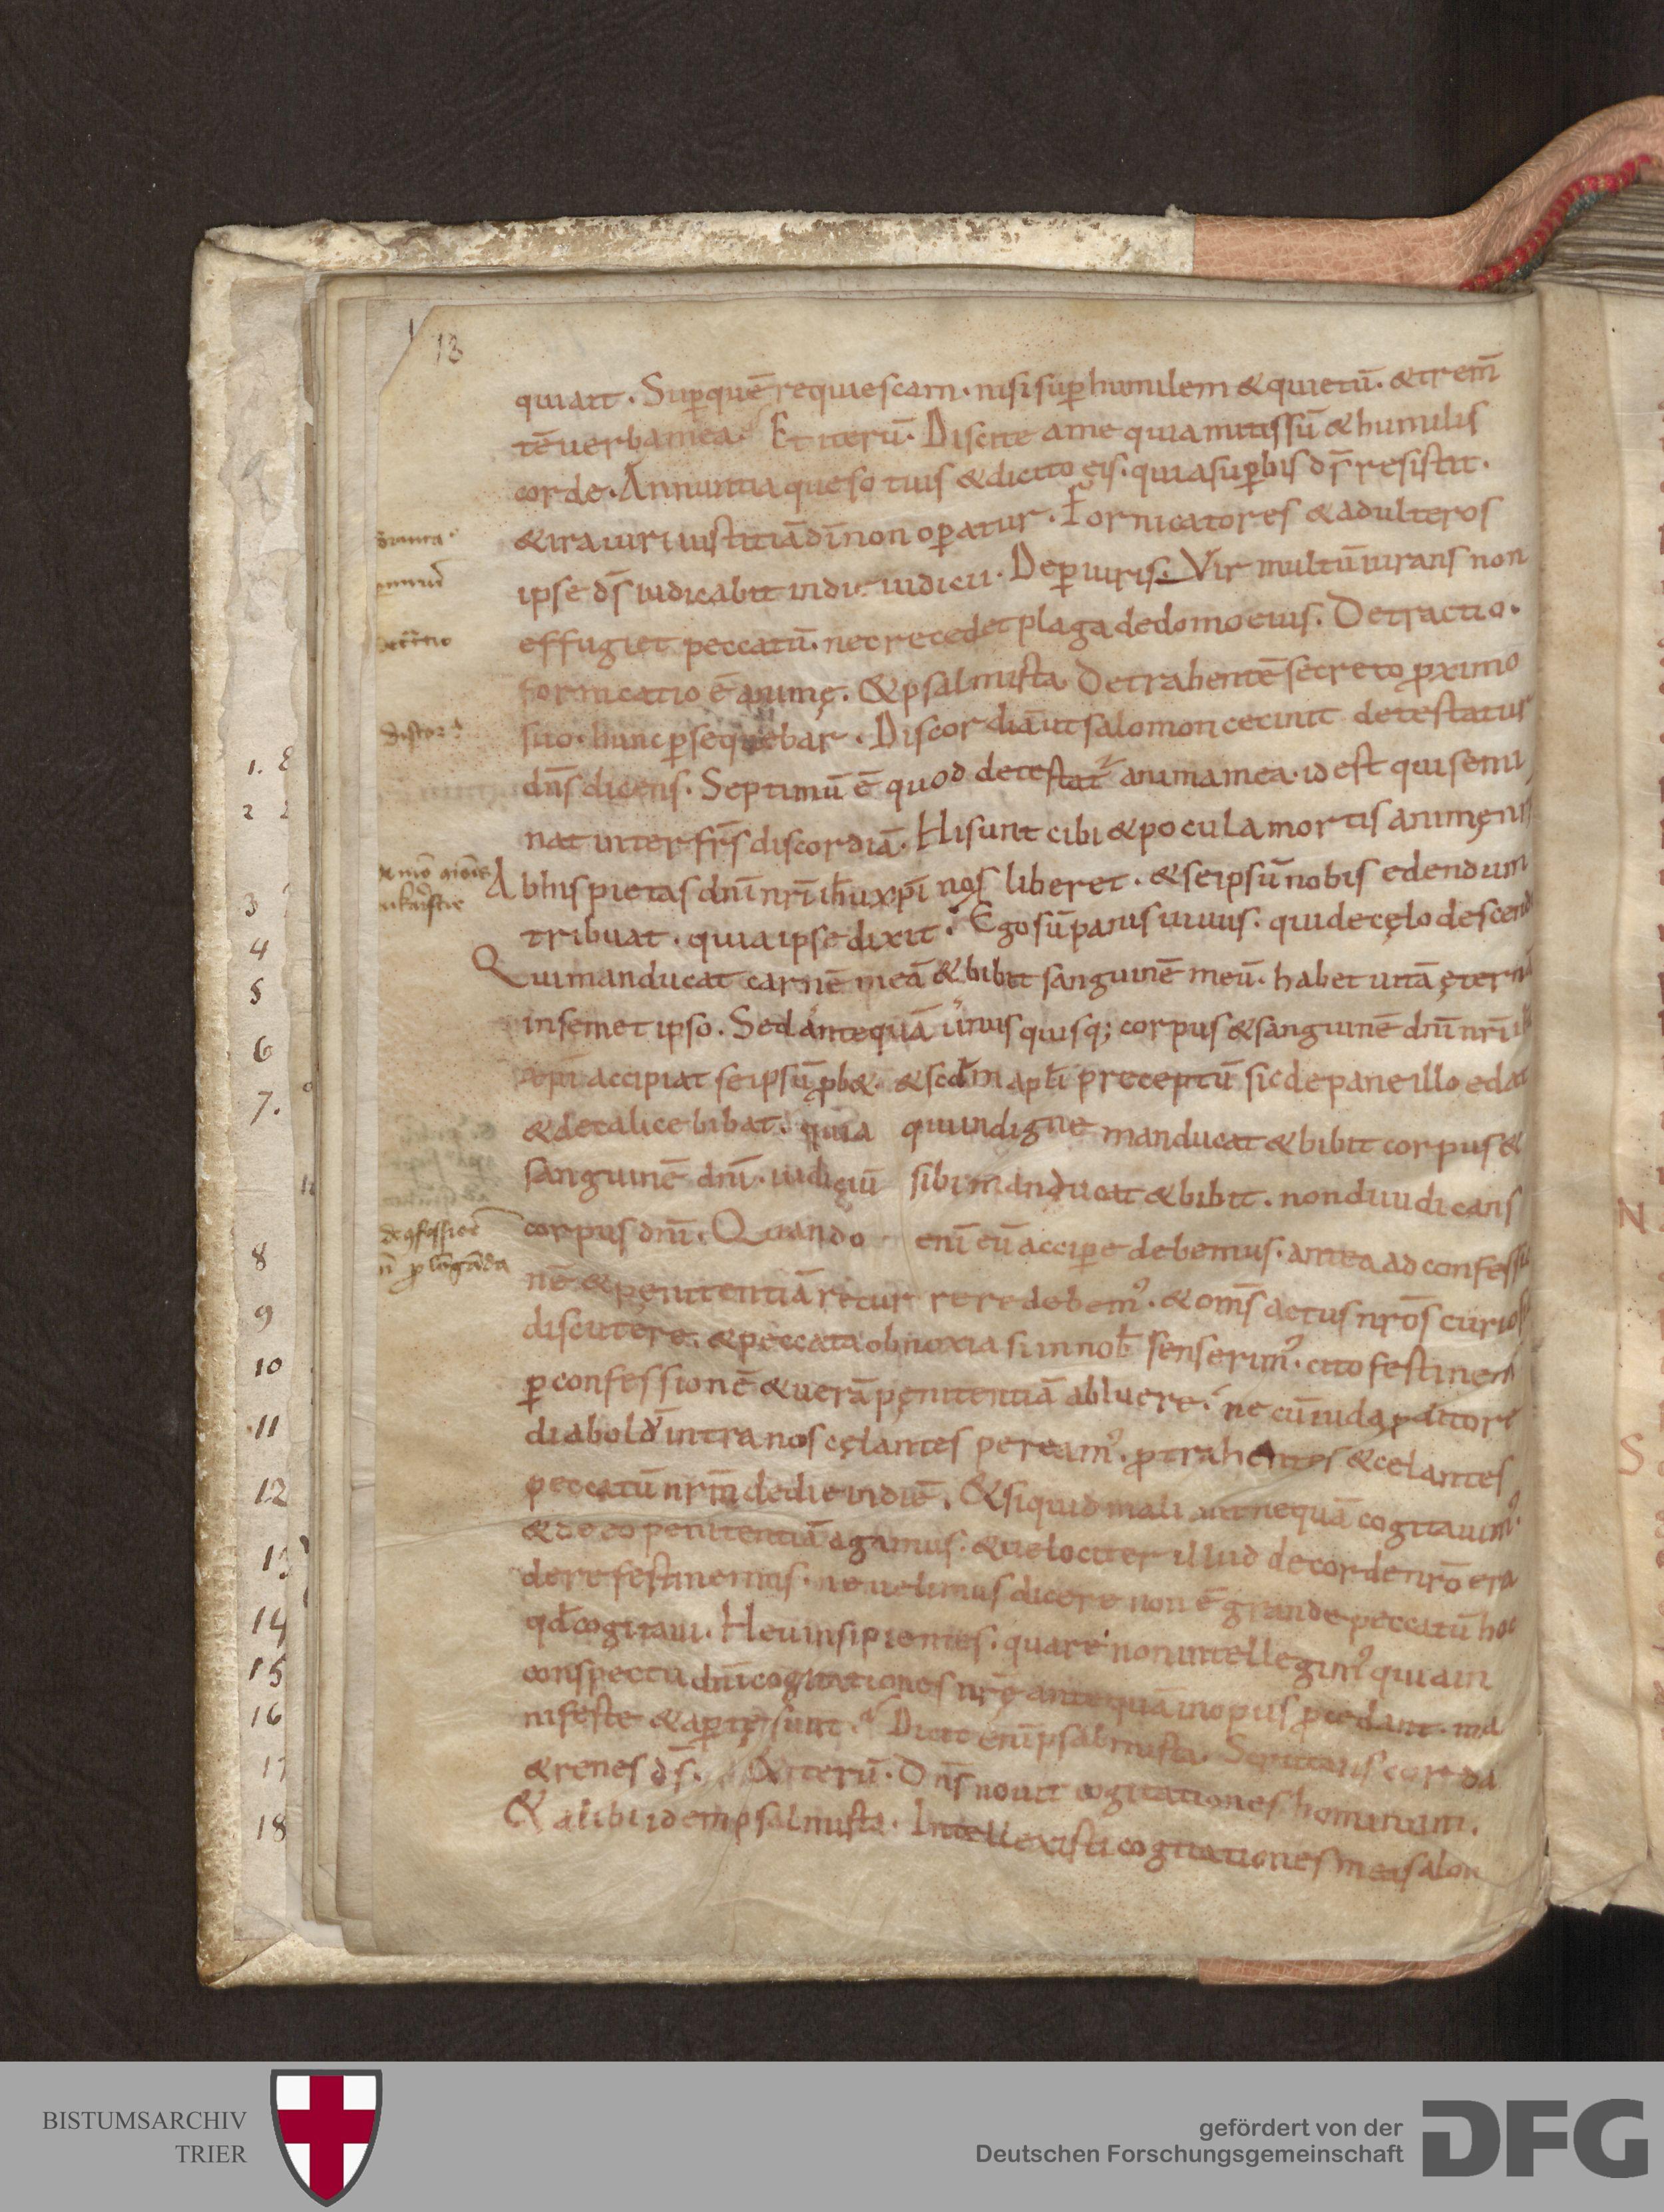 13
quiait. Sup̱quē requiescam. nisi sup̱humilem & quietū. & trem̄
tē uerba mea. Et iterū. Discite a me quia mitis sū & humilis
corde. Annuntia queso tuis & dicito eis. quia sup̱bis d̄s resistit.
& ira uiri iustitiā dī non op̱atur. Fornicatores & adulteros
ipse d̄s iudicabit in die iudicii. De p̱iuris. Vir multū iurans non
effugiet peccatū. nec recedet plaga de domo eius. Detractio.
fornicatio ē animę. & psalmista Detrahentē secreto ꝓximo
suo. hunc p̱sequebar. Discordiā ut salomon cecinit detestatur
dn̄s dicens. Septimū ē quod detestat᷑ anima mea. id est qui semi
nat inter fr̄s discordiā. Hi sunt cibi & pocula mortis animę nr̄ę
Ab his pietas dn̄i nr̄i ih̄u xp̄i nos liberet. & se ipsū nobis edendum
tribuat. quia ipse dixit. Ego sū panis uiuus. qui de cęlo descend
Qui manducat carnē meā & bibit sanguinē meū. habet uitā ęternā
in semet ipso. Sed antequā unus quisq; corpus & sanguinē dn̄i nr̄i ih̄u
xp̄i accipiat se ipsū ꝓb&. & scd̄m apl̄i preceptū sic de pane illo edat
& de calice bibat. quia qui indigne manducat & bibit corpus &
sanguinē dn̄i. iudiciū sibi manducat & bibit. non diiudicans
corpus dn̄i. Quando enī eū accip̱e debemus. antea ad confessio
nē & penitentiā recurrere debem᾽. & om̄s actus nr̄os curiose
discutere. & peccata obnoxia si in nob̄ senserim᾽. cito festinem᾽
p̱ confessionē & uerā pęnitentiā abluere. ne cū iuda ꝓditore
diabolū intra nos cęlantes peream᾽. ꝓtrahentes & celantes
peccatū nr̄m de die in diē. & si quid mali aut nequā cogitauim᾽.
& de eo penitentiā agamus. & uelociter illud de corde nr̄o era
dere festinemus. ne uelimus dicere non ē grande peccatū hoc
qd̄ cogitaui. Heu insipientes. quare non intellegim᾽ quia in
conspectu dn̄i cogitationes nr̄ę antequā in opus ꝓcedant. ma
nifeste & ap̱tę sunt. Dicit enī psalmista. Scrutans corda
& renes d̄s. & iterū. Dn̄s nouit cogitationes hominum.
& alibi idem psalmista. Intellexisti cogitationes meas a lon
de ꝯfessiōe
n̄ ꝓlōgāda
1.
2
3
4
5
6
7.
8
9
10
11
12
13
14
15
16
17
18
BISTUMSARCHIV
TRIER
gefördert von der
Deutschen Forschungsgemeinschaft
DFG